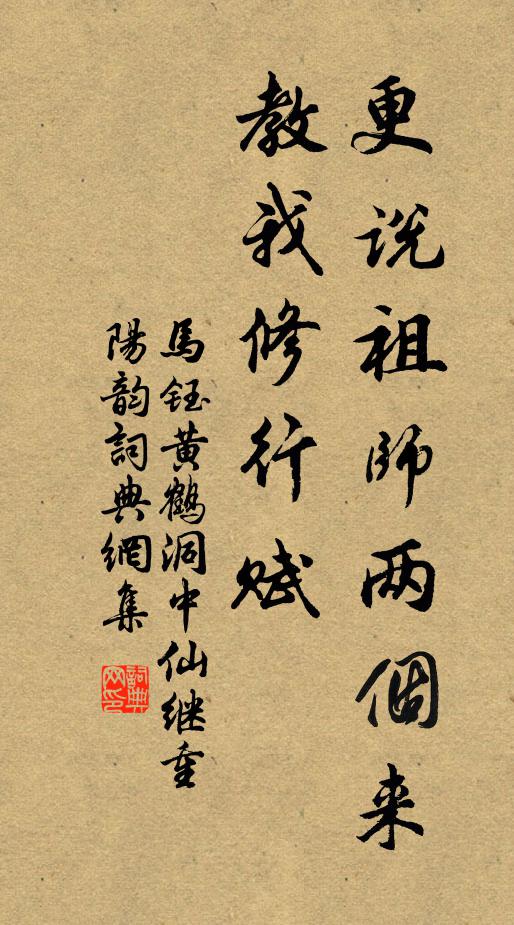 更说祖師两個来
教我修行赋
馬钰黄鹤洞中仙继重
陽韵詞典網集
詞典网印